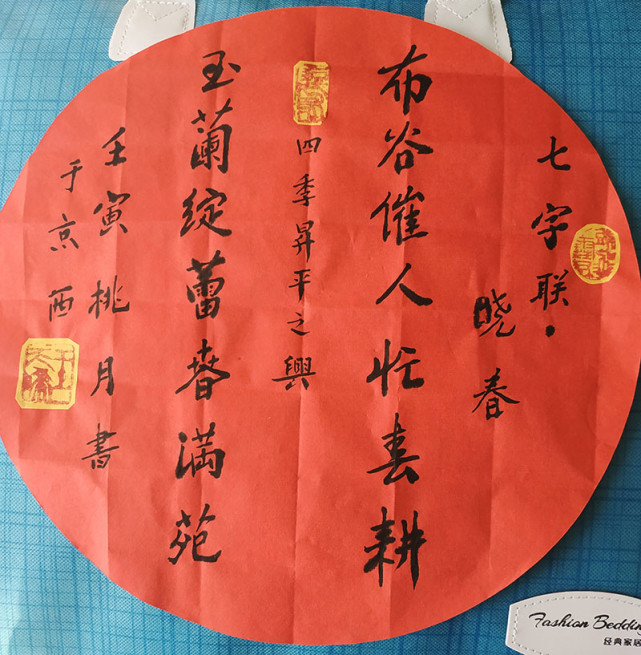 七字联·
晓春
布谷催人忙春耕
四季昇平之興
玉蘭綻蕾春满苑
壬寅桃月書
于京西
Fashion Beddin
经典家居